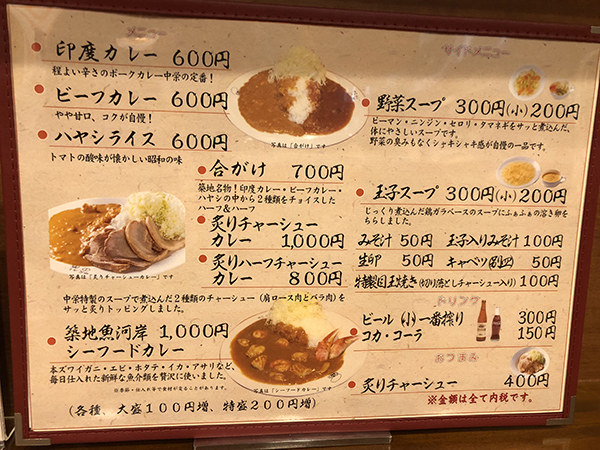 メニュー
印度カレー 600円
程よい辛さのポークカレー中栄の定番！
ビーフカレー 600円
やや甘口、コクが自慢！
ハヤシライス 600円
トマトの酸味が懐かしい昭和の味
写真は「合がけ」です
合がけ 700円
築地名物！印度カレー・ビーフカレー・
ハヤシの中から２種類をチョイスした
ハーフ＆ハーフ
炙りチャーシュー
カレー 1,000円
炙りハーフチャーシュー
カレー 800円
写真は「炙りチャーシューカレー」です
中栄特製のスープで煮込んだ２種類のチャーシュー（肩ロース肉とバラ肉）を
サッと炙りトッピングしました。
築地魚河岸 1,000円
シーフードカレー
本ズワイガニ・エビ・ホタテ・イカ・アサリなど、
毎日仕入れた新鮮な魚介類を贅沢に使いました。
※季節・仕入れ等で食材が変ることがあります。
写真は「シーフードカレー」です
（各種、大盛１００円増、特盛２００円増）
サイドメニュー
野菜スープ 300円(小)200円
ピーマン・ニンジン・セロリ・タマネギをサッと煮込んだ、
体にやさしいスープです。
野菜の臭みもなくシャキシャキ感が自慢の一品です。
玉子スープ 300円(小)200円
じっくり煮込んだ鶏ガラベースのスープにふぁふぁの溶き卵を
ちらしました。
みそ汁 50円 玉子入りみそ汁 100円
生卵 50円 キャベツ(別皿) 50円
特製目玉焼き(切り落としチャーシュー入り) 100円
ドリンク
ビール (小)一番搾り 300円
コカ・コーラ 150円
おつまみ
炙りチャーシュー 400円
※金額は全て内税です。